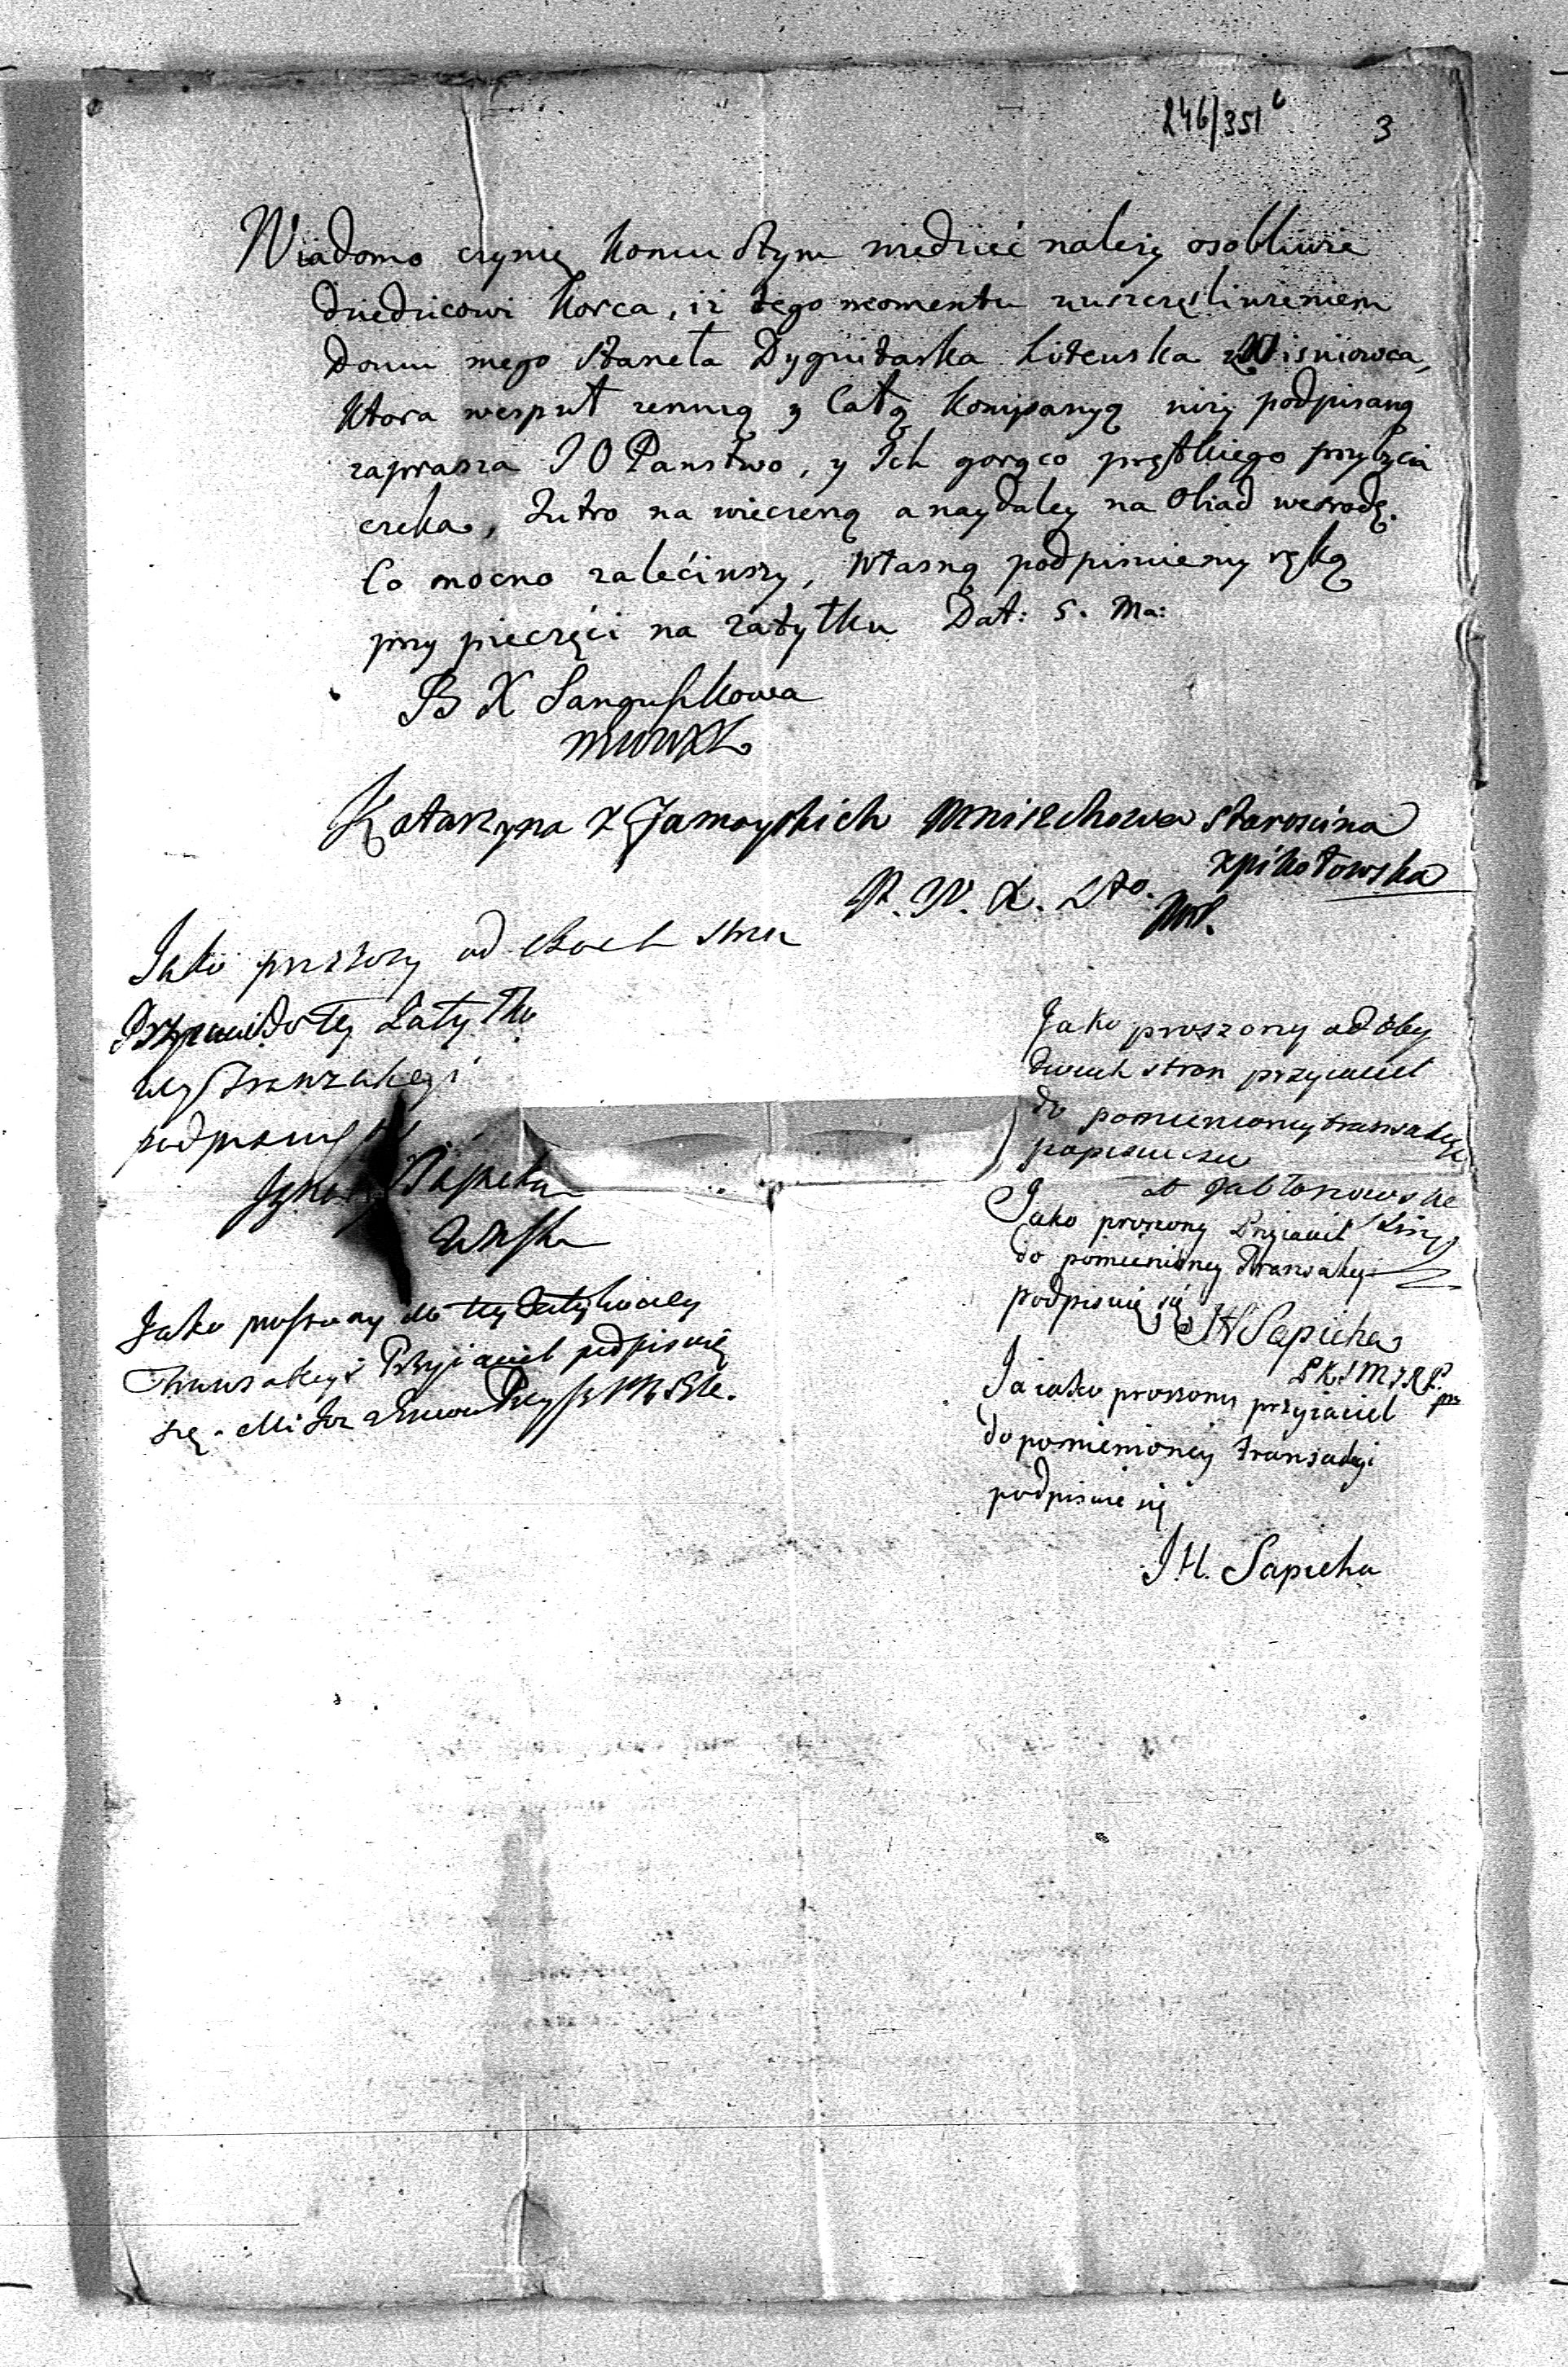 246/351
3
Wiadomo czynię komu otym wiedzieć należy osobliwie
dziedzicowi Korca, iż tego momentu zuszczęśliwieniem
domu mego staneła Dygnitarka Litewska z Wisniowca,
ktora wespuł zemną y Całą Kompanyą niży podpisaną
zaprasza J O Panstwo, y Ich gorąco prętkiego przybycia
czeka, Jutro na wieczerzą a naydaley na Obiad weśrodę.
Co mocno zaleciwszy, własną podpisuiemy ręką
przy pieczęci na Zasytku Dat: 5. Ma:
B X Sanguszkowa
MWWXL
Katarzyna z Zamoyskich Mniszchowa starościna
P. W. X. Lto. xpikołowska
mp.
Jako proszony od obuch stron
Przyiaciel do tey
tranzakcyi
podpisuię
Ignacy Sapieha
Jako proszony do tey
Tranzakcyi Przyiaciel podpisuię
się.
Jako proszony od oby
dwuch stron przyiaciel
do pomienioney tranzakcyi
popisuie sie
Jabłonowski
Jako proszony Przyiaciel
do pomienioney Tranzakcyi
podpisuię się
JH Sapieha
Ja iako proszony przyiaciel
do pomienioney tranzakcyi
podpisuie się
J.H. Sapieha